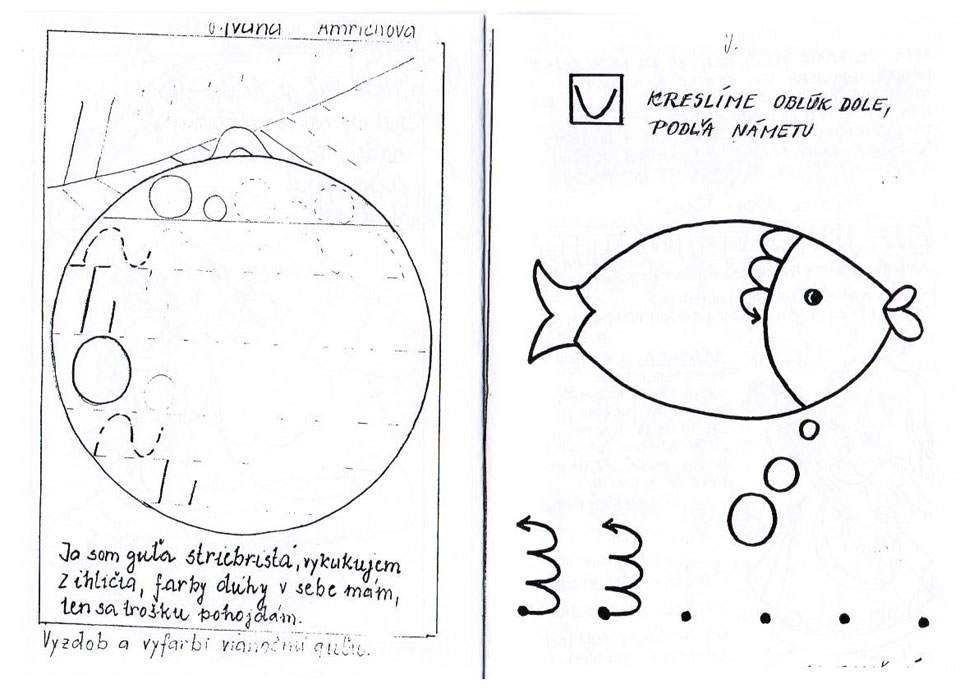 Ivana Amrichova
Ja som guľa striebristá, vykukujem
z ihličia, farby dúhy v sebe mám,
len sa trošku pohojdám.
Vyzdob a vyfarbi vianočnú guľu.
KRESLÍME OBLÚK DOLE,
PODĽA NÁMETU